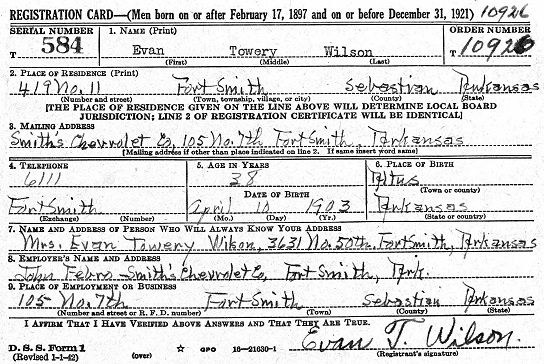 REGISTRATION CARD—(Men born on or after February 17, 1897 and on or before December 31, 1921) 10926
SERIAL NUMBER 1. NAME (Print) ORDER NUMBER
T 584 Evan Towery Wilson T 10926
(First) (Middle) (Last)
2. PLACE OF RESIDENCE (Print)
419 No. 11 Fort Smith Sebastian Arkansas
(Number and street) (Town, township, village, or city) (County) (State)
[THE PLACE OF RESIDENCE GIVEN ON THE LINE ABOVE WILL DETERMINE LOCAL BOARD
JURISDICTION; LINE 2 OF REGISTRATION CERTIFICATE WILL BE IDENTICAL]
3. MAILING ADDRESS
Smith's Chevrolet Co, 105 No. 7th Fort Smith, Arkansas
[Mailing address if other than place indicated on line 2. If same insert word same]
4. TELEPHONE 5. AGE IN YEARS 6. PLACE OF BIRTH
6111 38 Altus
DATE OF BIRTH (Town or county)
Fort Smith April 10 1903 Arkansas
(Exchange) (Number) (Mo.) (Day) (Yr.) (State or country)
7. NAME AND ADDRESS OF PERSON WHO WILL ALWAYS KNOW YOUR ADDRESS
Mrs. Evan Towery Wilson, 3631 No. 50th. Fort Smith, Arkansas
8. EMPLOYER'S NAME AND ADDRESS
John Smith's Chevrolet Co, Fort Smith, Ark.
9. PLACE OF EMPLOYMENT OR BUSINESS
105 No. 7th Fort Smith Sebastian Arkansas
(Number and street or R. F. D. number) (Town) (County) (State)
I AFFIRM THAT I HAVE VERIFIED ABOVE ANSWERS AND THAT THEY ARE TRUE.
D. S. S. Form 1 Evan T. Wilson.
(Revised 1-1-42) (over) ☆ GPO 16—21630-1 (Registrant's signature)